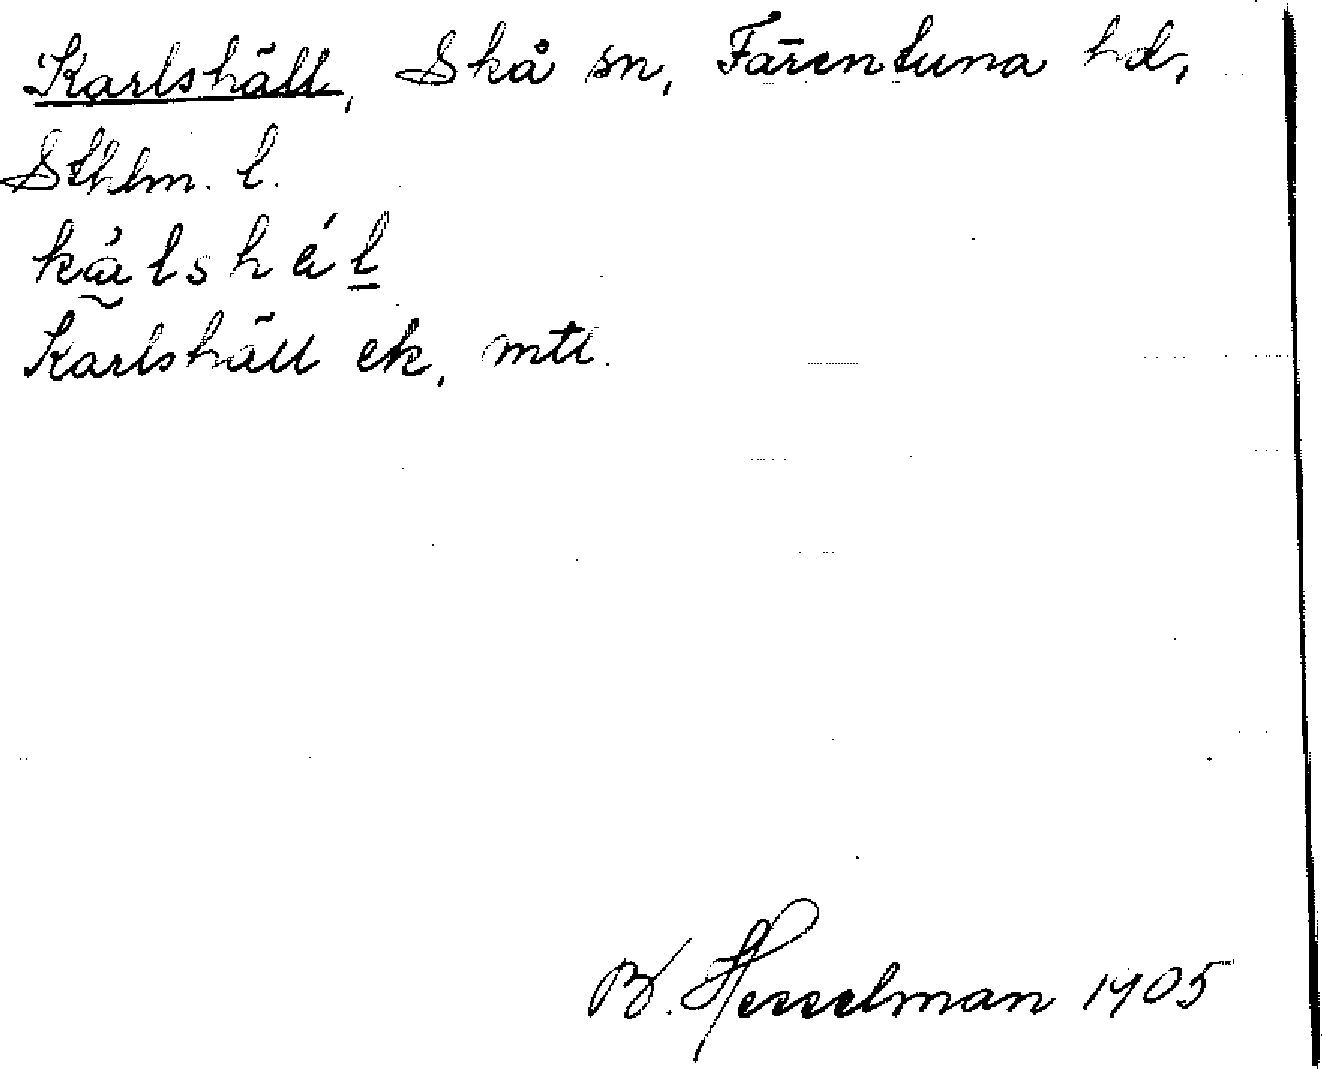 Karlshäll, Skå sn, Färentuna hd,
Sthlm. l.
kálshél
Karlshäll ek, mtl.
B. Hesselman 1905